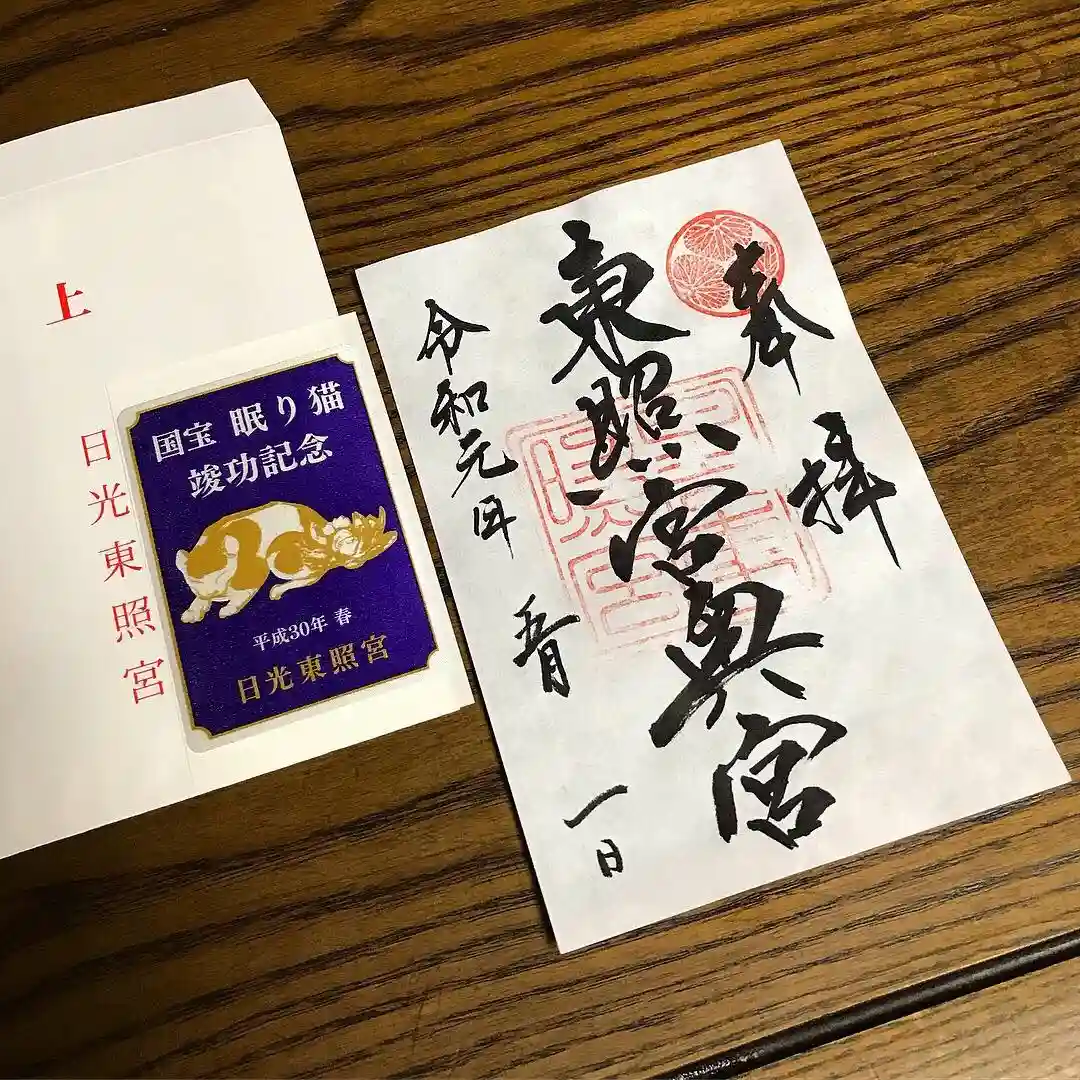 上
日光東照宮
国宝 眠り猫
竣功記念
平成30年 春
日光東照宮
奉拝
東照宮奥宮
令和元年 五月 一日